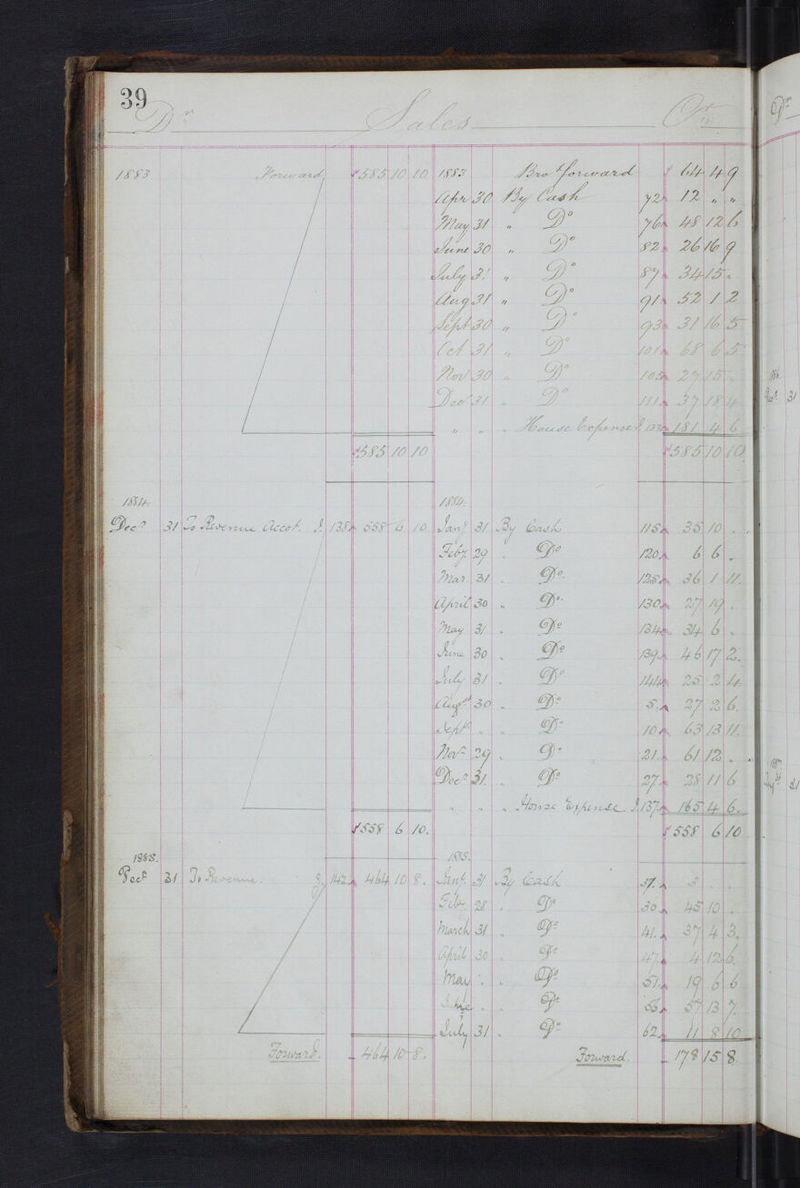 39
Dr Sales Cr
1883 Forward £ 585 10 10 1883 Bro Forward £ 64 4 9
Apr 30 By Cash 72 12 " "
May 31 " Do 76 48 12 6
June 30 " Do 82 26 16 9
July 31 " Do 87 34 15 "
Aug 31 " Do 91 52 1 2
Sept 30 " Do 93 31 16 5
Oct 31 " Do 101 68 6 5
Nov 30 " Do 105 27 15 "
Dec 31 " Do 111 37 18 4
" " " House Expense J. 181 4 6
£585 10 10 £585 10 10
1884. 1884.
Decr 31 To Revenue Accot. J. 138 558 6 10 Jany 31 By Cash 115 35 10 .
Feby 29 . Do 120 6 6 .
Mar. 31 . Do. 125 36 1 11.
April 30 . Do. 130 27 19 .
May 31 . Do 134 34 6 .
June 30 . Do 139 46 17 2.
July 31 . Do 144 25 2 4
Augst 30 . Do 5 27 2 6.
Septr . . Do 10 63 13 11.
Novr 29 . Do 21 61 12 .
Decr 31 . Do 27 28 11 6
" " " House Expense J. 137 165 4 6.
£558 6 10. £558 6 10
1885. 1885.
Decr 31 To Revenue. J. 142 464 10 8. Jany 31 By Cash 37. 3 . .
Feby 28 . Do 30 45 10 .
March 31 . Do 41. 37 4 3.
April 30 . Do 47 4 12 6.
May . . Do 51 19 6 6
June . . Do 56 57 13 7.
July 31 . Do 62 11 8 10
Forward. 464 10 8. Forward. 178 15 8